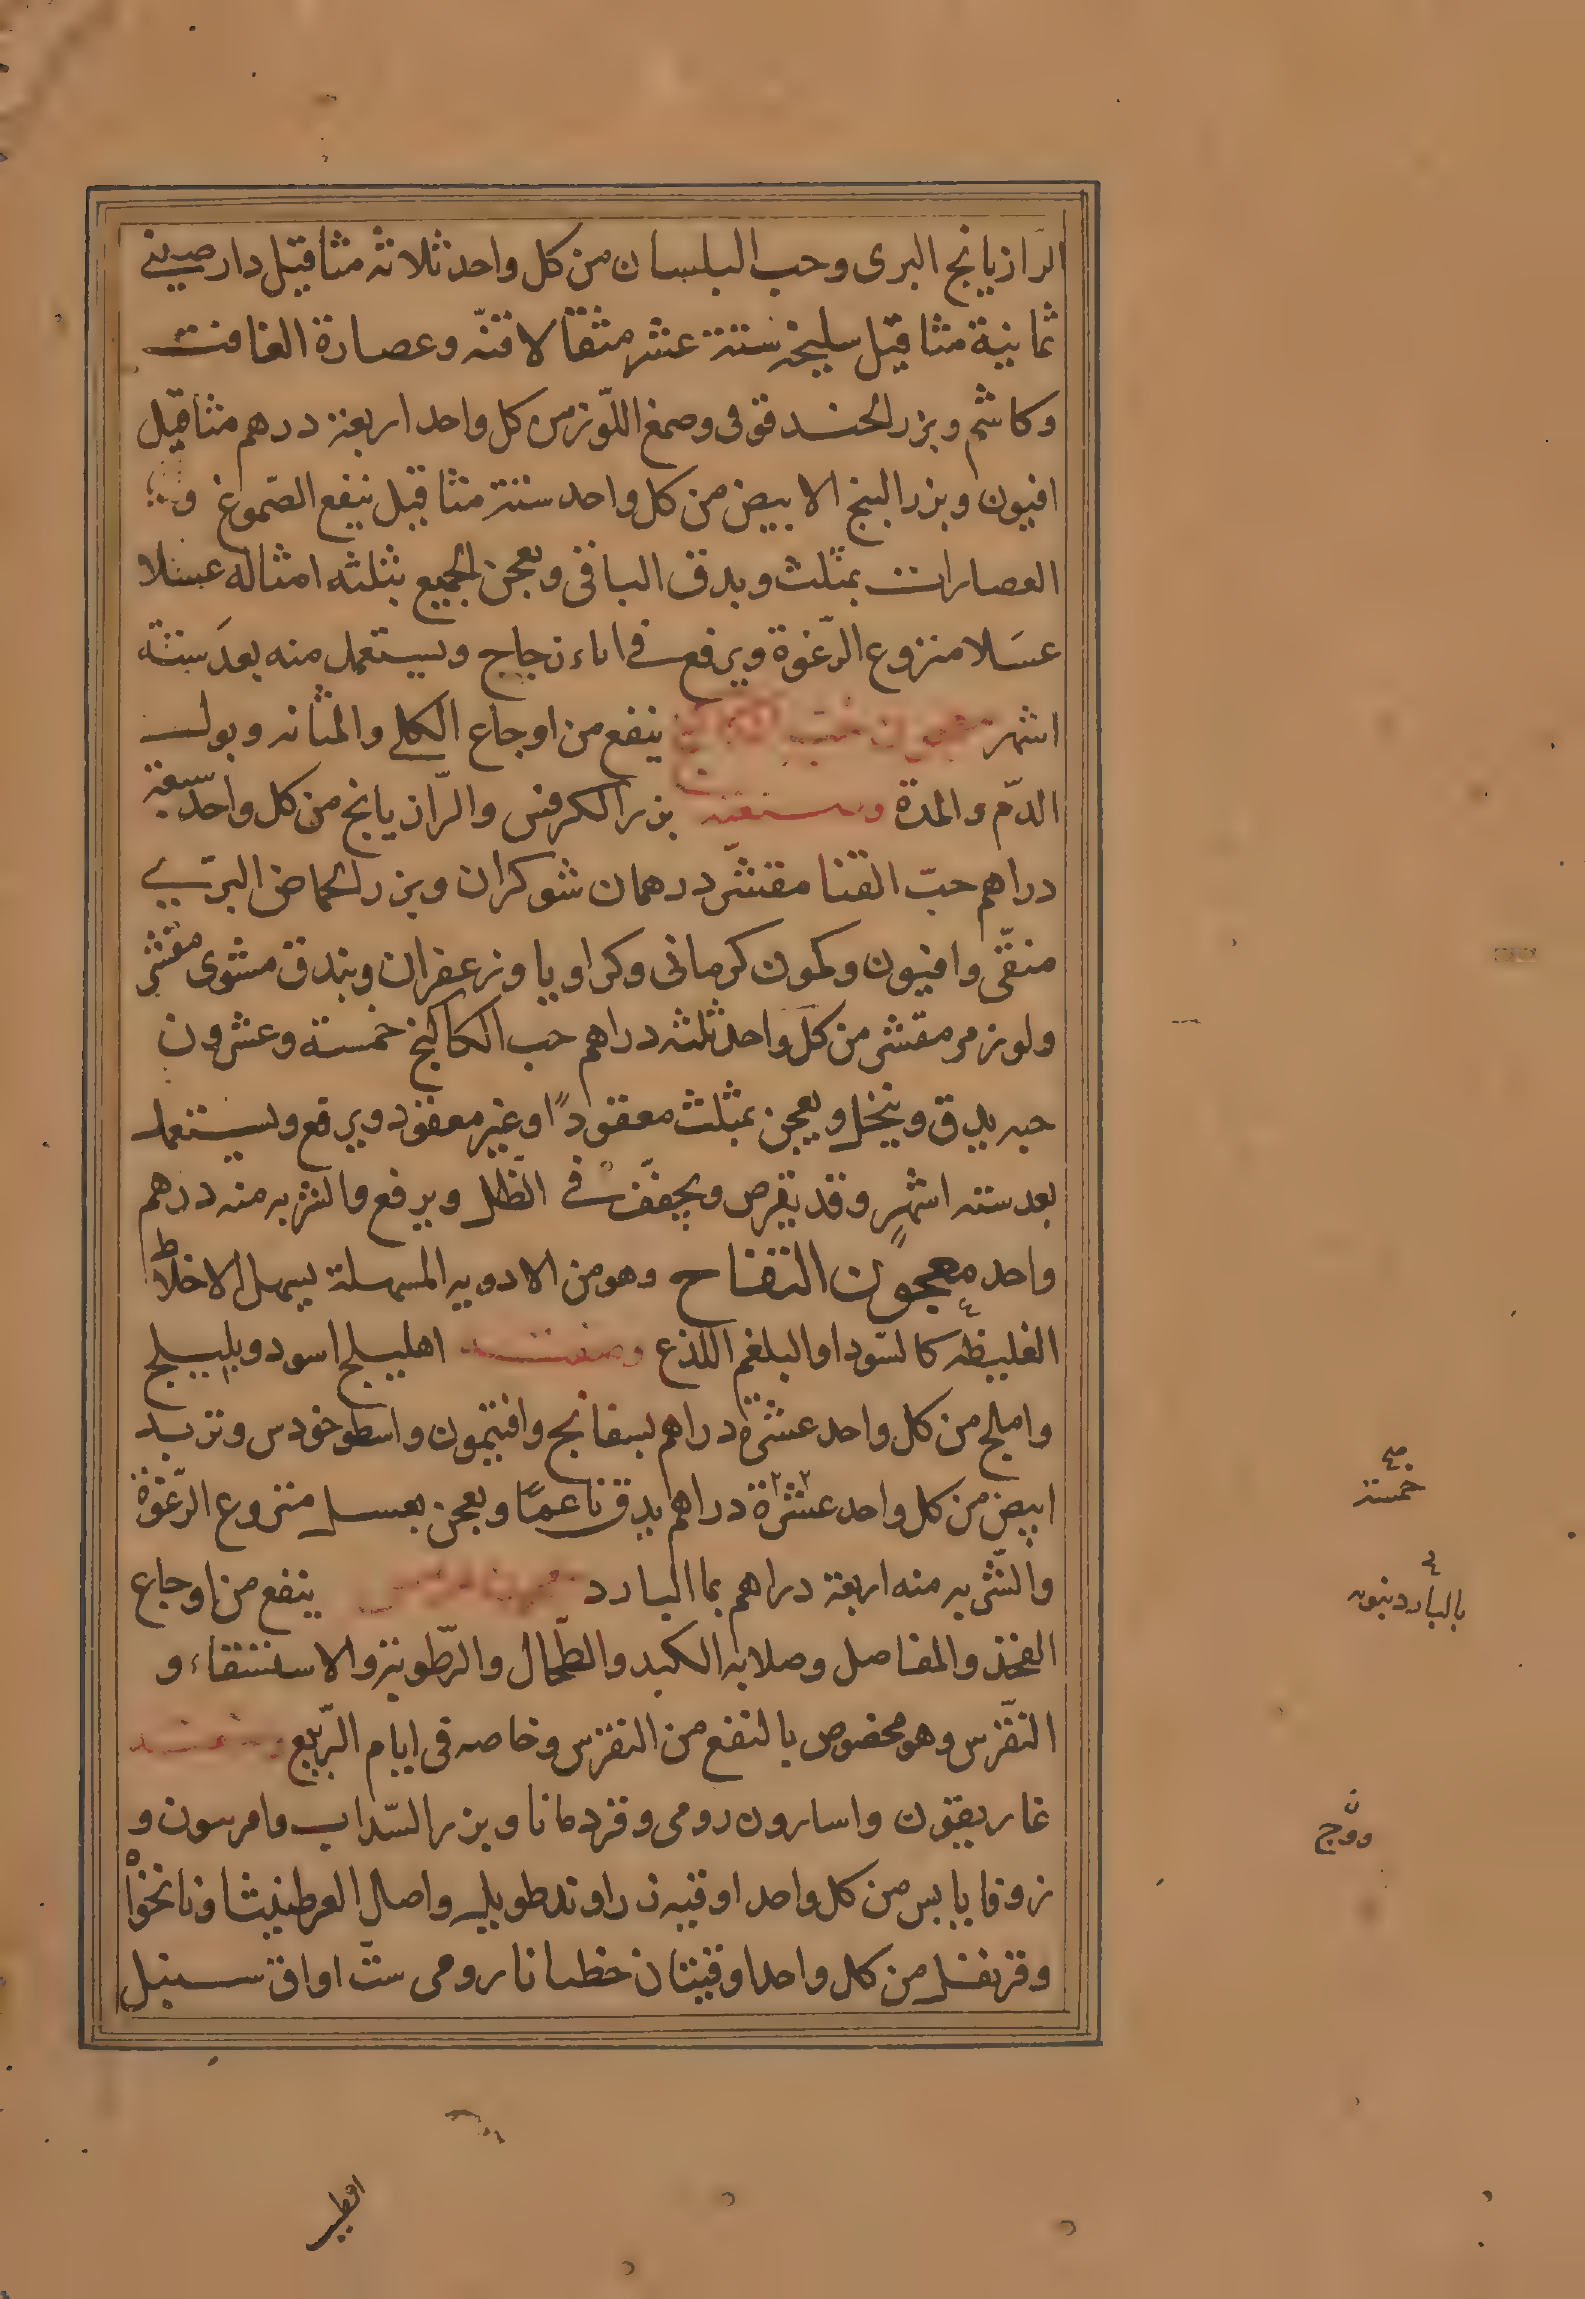 الرازيانج البرى وحب البلسان من كل واحد ثلاثه مثاقيل دارصينى
ثمانية مثاقيل سليخه ستة عشر مثقالا قنّه وعصارة الغافت
وكاشم وبزر الحندقوقى وصمغ اللّوز من كل واحد اربعة درهم مثاقيل
افيون وبزر البنج الابيض من كل واحد ستة مثاقيل ينقع الصّموغ و
العصارات بمثلث ويدق الباقى ويعجن الجميع بثلثه امثاله عسلا
عسَلا منزوع الرّغوة ويرفع فى اناء زجاج ويستعمل منه بعدَ ستة
اشهر معجون حب الكاكنج ينفع من اوجاع الكلى والمثانه وبول
الدّم والمدة وصنعته بزر الكرفس والرّازيانج من كل واحد سبعة
دراهم حبّ القثا مقشّر درهمان شوكران وبزر الحماض البرّى
منقّى وافيون وكمون كرمانى وكراويا وزعفران وبندق مشوى مقشر
ولوز مر مقشر من كلّ واحد ثلثه دراهم حب الكاكنج خمسة وعشرون
حبه يدق وينخل ويعجن بمثلث معقودً او غير معقود ويرفع ويستعمل
بعد سته اشهر وقد يقرص ويجفّف فى الظّل ويرفع والشربه منه درهم
واحد معجون التفاح وهو من الادويه المسهلة يسهل الاخلاط
الغليظه كالسّودا والبلغم اللذع وصفته اهليلج اسود وبليلج
واملج من كل واحد عشرة دراهم بسفانج وافتيمون واسطوخودس وتربد
ابيض من كل واحد عشرة دراهم يدق ناعمًا ويعجن بعسل منزوع الرّغوة
والشّربه منه اربعة دراهم بما البارد ينفع من اوجاع
الفخذ والمفاصل وصلابه الكبد والطّحال والرّطوبة والاستسقاء و
النّقرس وهو مخصوص بالنفع من النقرس وخاصه فى ايام الرّبيع وصنعته
غاريقون واسارون رومى وقردمانا وبزر السّداب وفراسون و
زوفا يابس من كل واحد اوقيه زراوند طويل واصل العرطنيثا ونانخواه
وقرنفل من كل واحد اوقيتان خطيانا رومى ستّ اواق سنبل
خمسة
ووج